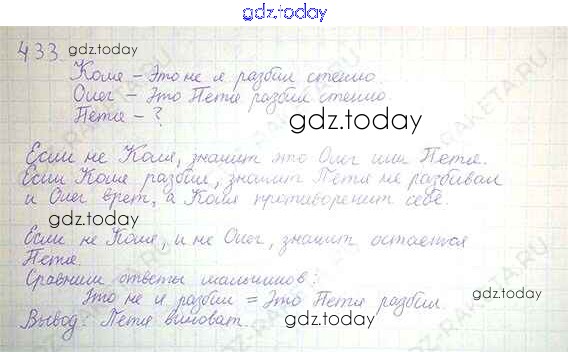 gdz.today
433 gdz.today
Коля - Это не я разбил стекло.
Олег - Это Петя разбил стекло
Петя - ?
gdz.today
Если не Коля, значит это Олег или Петя.
Если Коля разбил, значит Петя не разбивал
и Олег врет, а Коля противоречит себе.
gdz.today
Если не Коля, и не Олег, значит остается
Петя.
Сравним ответы мальчиков:
gdz.today
Это не я разбил = Это Петя разбил.
Вывод: Петя виноват.
gdz.today